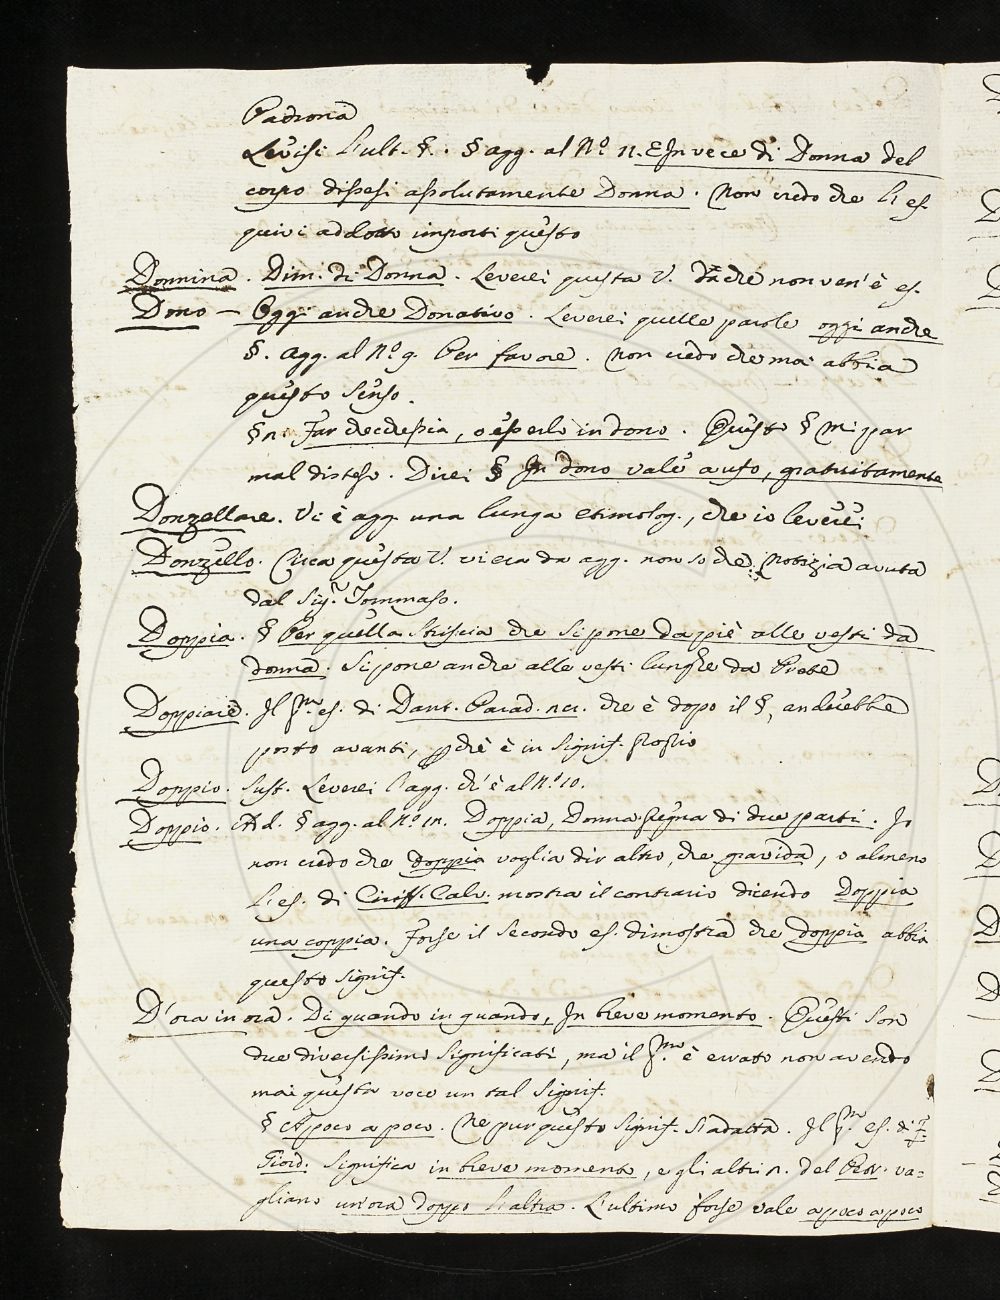 Padrona
Levisi l'ult. §. § agg. al Nº 11. E In vece di Donna del
corpo dissesi assolutamente Donna. Non vedo che l'es.
quivi addotto importi questo
Donnina. Dim. di Donna. Leverei questa V. che non ven'è es.
Dono — Oggi anche Donativo. Leverei quelle parole oggi anche
§. agg. al Nº 9. Per favore. Non vedo che mai abbia
questo senso.
§ n. Far checchessia, o esserlo in dono. Questo § mi par
mal disteso. Direi § In dono vale a ufo, gratuitamente
Donzellare. Vi è agg. una lunga etimolog., che io leverei
Donzello. Circa questa V. vi era da agg. non so che notizia avuta
dal Sig.r Tommaso.
Doppia. § Per quella striscia che si pone da piè alle vesti da
donna. Si pone anche alle vesti lunghe da Prete
Doppiare. Il pmo. es. di Dant. Parad. che è dopo il §, anderebbe
posto avanti, pchè è in signif. proprio
Doppio. Sust. Leverei l'agg. ch'è al Nº 10.
Doppio. Ad. § agg. al Nº 1n. Doppia, Donna pregna di due parti. Io
non credo che doppia voglia dir altro, che gravida, o almeno
l'es. di Ciriff. Calv. mostra il contrario dicendo Doppia
una coppia. Forse il secondo es. dimostra che doppia abbia
questo signif.
D'ora in ora. Di quando in quando, In breve momento. Questi son
due diversissimi significati, ma il pmo. è errato non avendo
mai questa voce un tal signif.
§ A poco a poco. Ne pur questo signif. s'adatta. Il pmo. es. di F.
Giord. significa in breve momento, e gli altri n. del Petr. va=
gliano un'ora doppo l'altra. L'ultimo forse vale a poco a poco